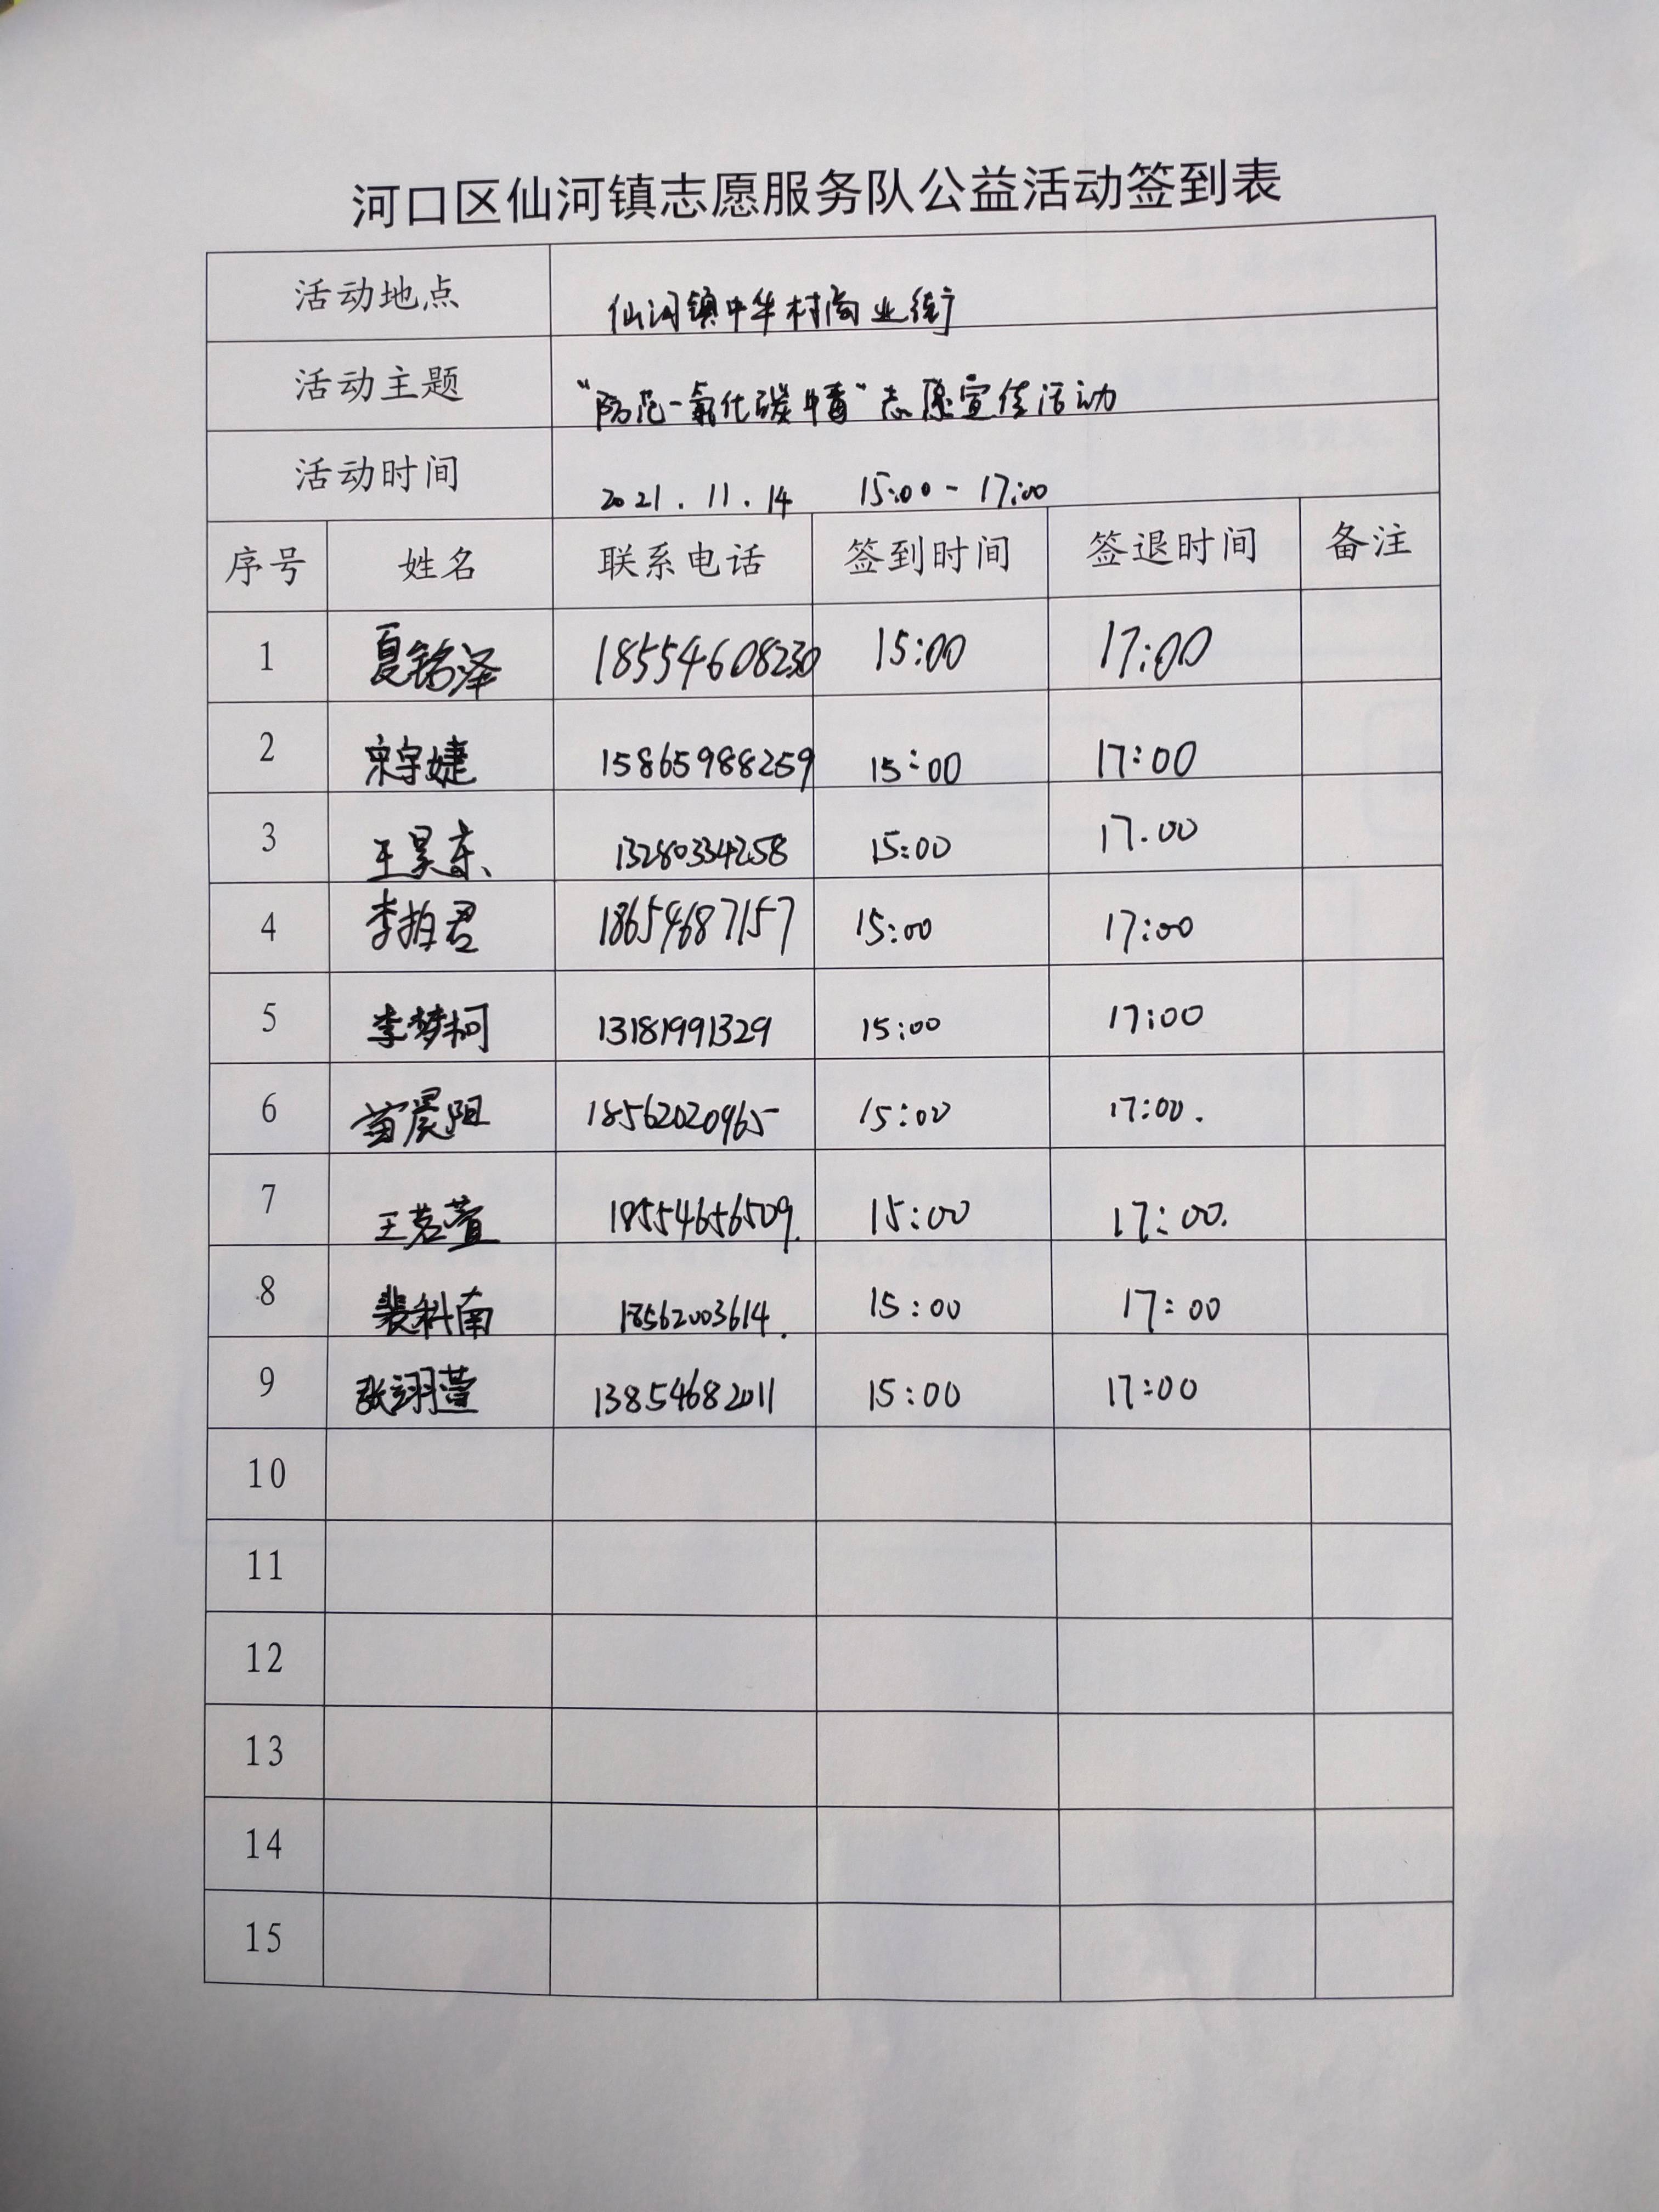 河口区仙河镇志愿服务队公益活动签到表
活动地点 仙河镇中华村商业街
活动主题 “防范一氧化碳中毒”志愿宣传活动
活动时间 2021.11.14 15:00-17:00
序号 姓名 联系电话 签到时间 签退时间 备注
1 夏铭泽 18554608230 15:00 17:00
2 宋宇婕 15865988259 15:00 17:00
3 王昊东 13280334258 15:00 17.00
4 李柏君 18654687157 15:00 17:00
5 李梦柯 13181991329 15:00 17:00
6 苗晨阳 18562020965 15:00 17:00.
7 王茗萱 18554656509. 15:00 17:00.
8 裴科南 18562003614. 15:00 17:00
9 张翊萱 13854682011 15:00 17:00
10
11
12
13
14
15